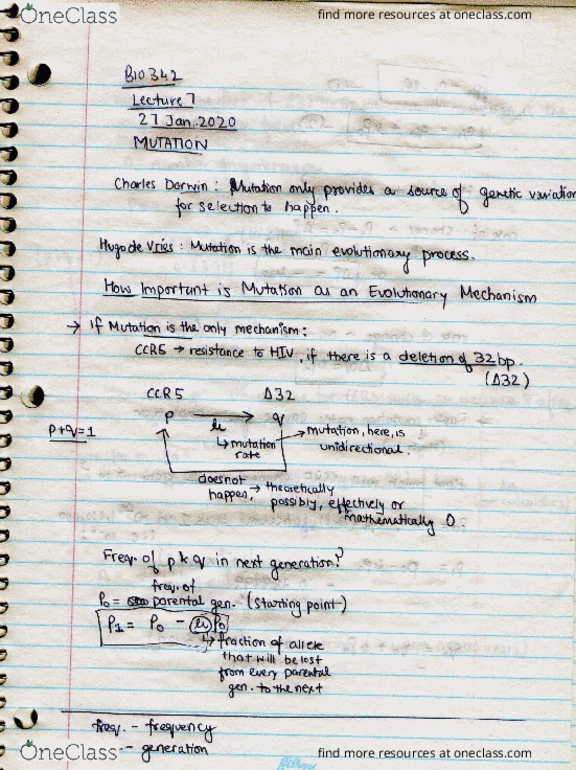 OneClass
find more resources at oneclass.com
BIO 342
Lecture 7
27 Jan. 2020
MUTATION
Charles Darwin : Mutation only provides a source of genetic variation
for selection to happen.
Hugo de Vries : Mutation is the main evolutionary process.
How Important is Mutation as an Evolutionary Mechanism
→ If Mutation is the only mechanism :
CCR5 → resistance to HIV, if there is a deletion of 32 bp.
(Δ32)
CCR5 Δ32
p+q=1
p → q
μ
↳ mutation rate
→ mutation, here, is
unidirectional.
does not
happen, → theoretically
possibly, effectively or
mathematically 0.
Freq. of p & q in next generation?
freq. of
P₀ = parental gen. (starting point)
P₁ = P₀ - μP₀
↳ fraction of allele
that will be lost
from every parental
gen. to the next
freq. - frequency
- generation
OneClass
find more resources at oneclass.com